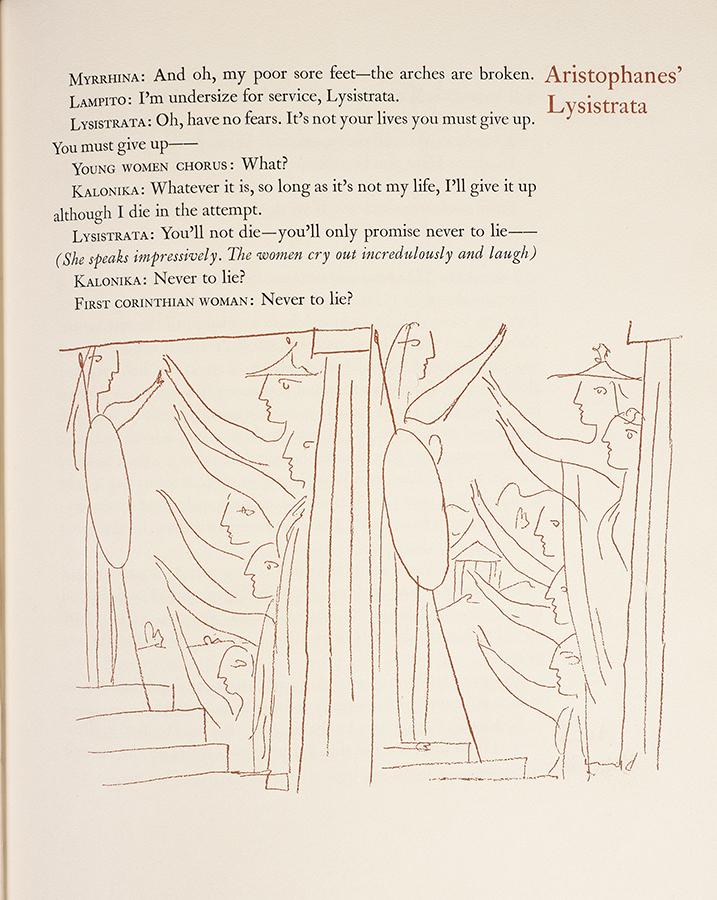 MYRRHINA: And oh, my poor sore feet—the arches are broken.
LAMPITO: I'm undersize for service, Lysistrata.
LYSISTRATA: Oh, have no fears. It's not your lives you must give up.
You must give up——
YOUNG WOMEN CHORUS: What?
KALONIKA: Whatever it is, so long as it's not my life, I'll give it up
although I die in the attempt.
LYSISTRATA: You'll not die—you'll only promise never to lie——
(She speaks impressively. The women cry out incredulously and laugh)
KALONIKA: Never to lie?
FIRST CORINTHIAN WOMAN: Never to lie?
Aristophanes'
Lysistrata